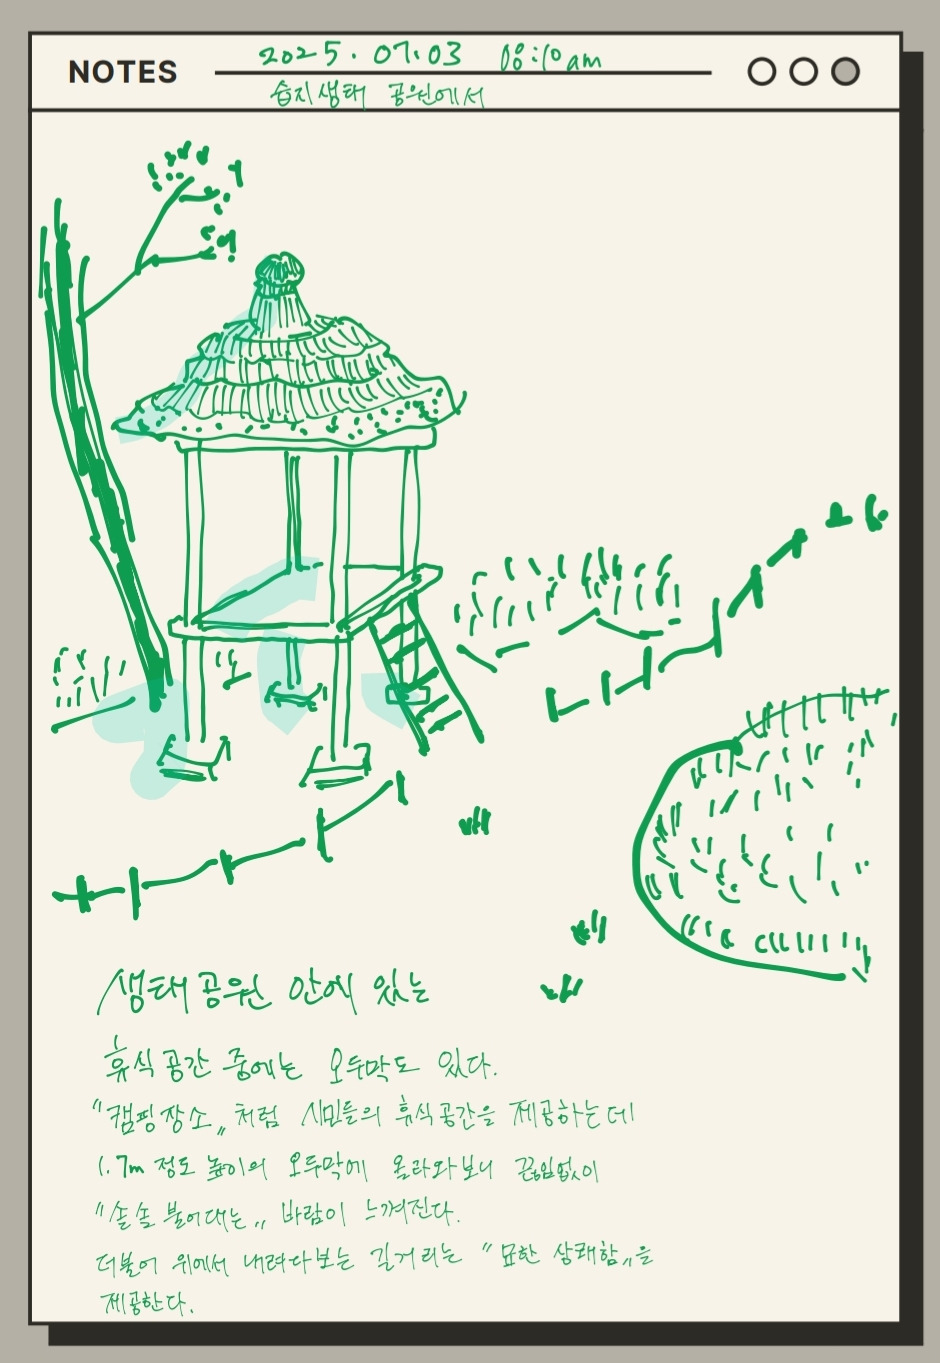 NOTES 2025. 07. 03 08:10am
습지생태 공원에서
생태공원 안에 있는
휴식 공간 중에는 오두막도 있다.
"캠핑장소„처럼 시민들의 휴식공간을 제공하는데
1.7m 정도 높이의 오두막에 올라와보니 끊임없이
"솔솔 불어대는„ 바람이 느껴진다.
더불어 위에서 내려다보는 길거리는 "묘한 상쾌함„을
제공한다.